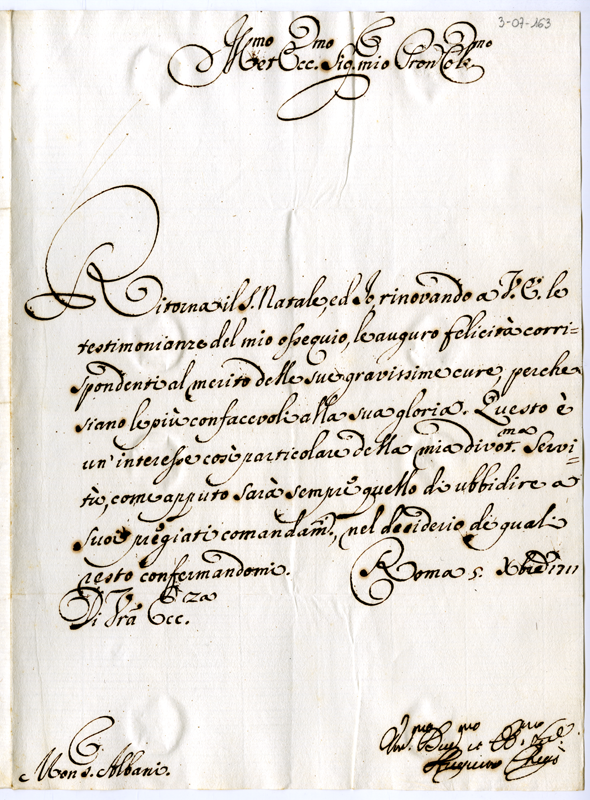 3-07-163
Ill.mo et Ecc.mo Sig. mio Pron Col.mo
Ritorna il S. Natale, ed Io rinovando a V. E. le
testimonianze del mio ossequio, le auguro felicità corri=
spondenti al merito delle sue gravissime cure, perche
siano le più confacevoli alla sua gloria. Questo è
un' interesse così particolare della mia divot.ma Servi=
tù, come apputo sarà sempre quello di ubbidire a
suoi pregiati comandam.ti, nel desiderio de quali
resto confermandomi. Roma 5. Xbre 1711
Di V.ra Ecc.za
Mons. Albani.